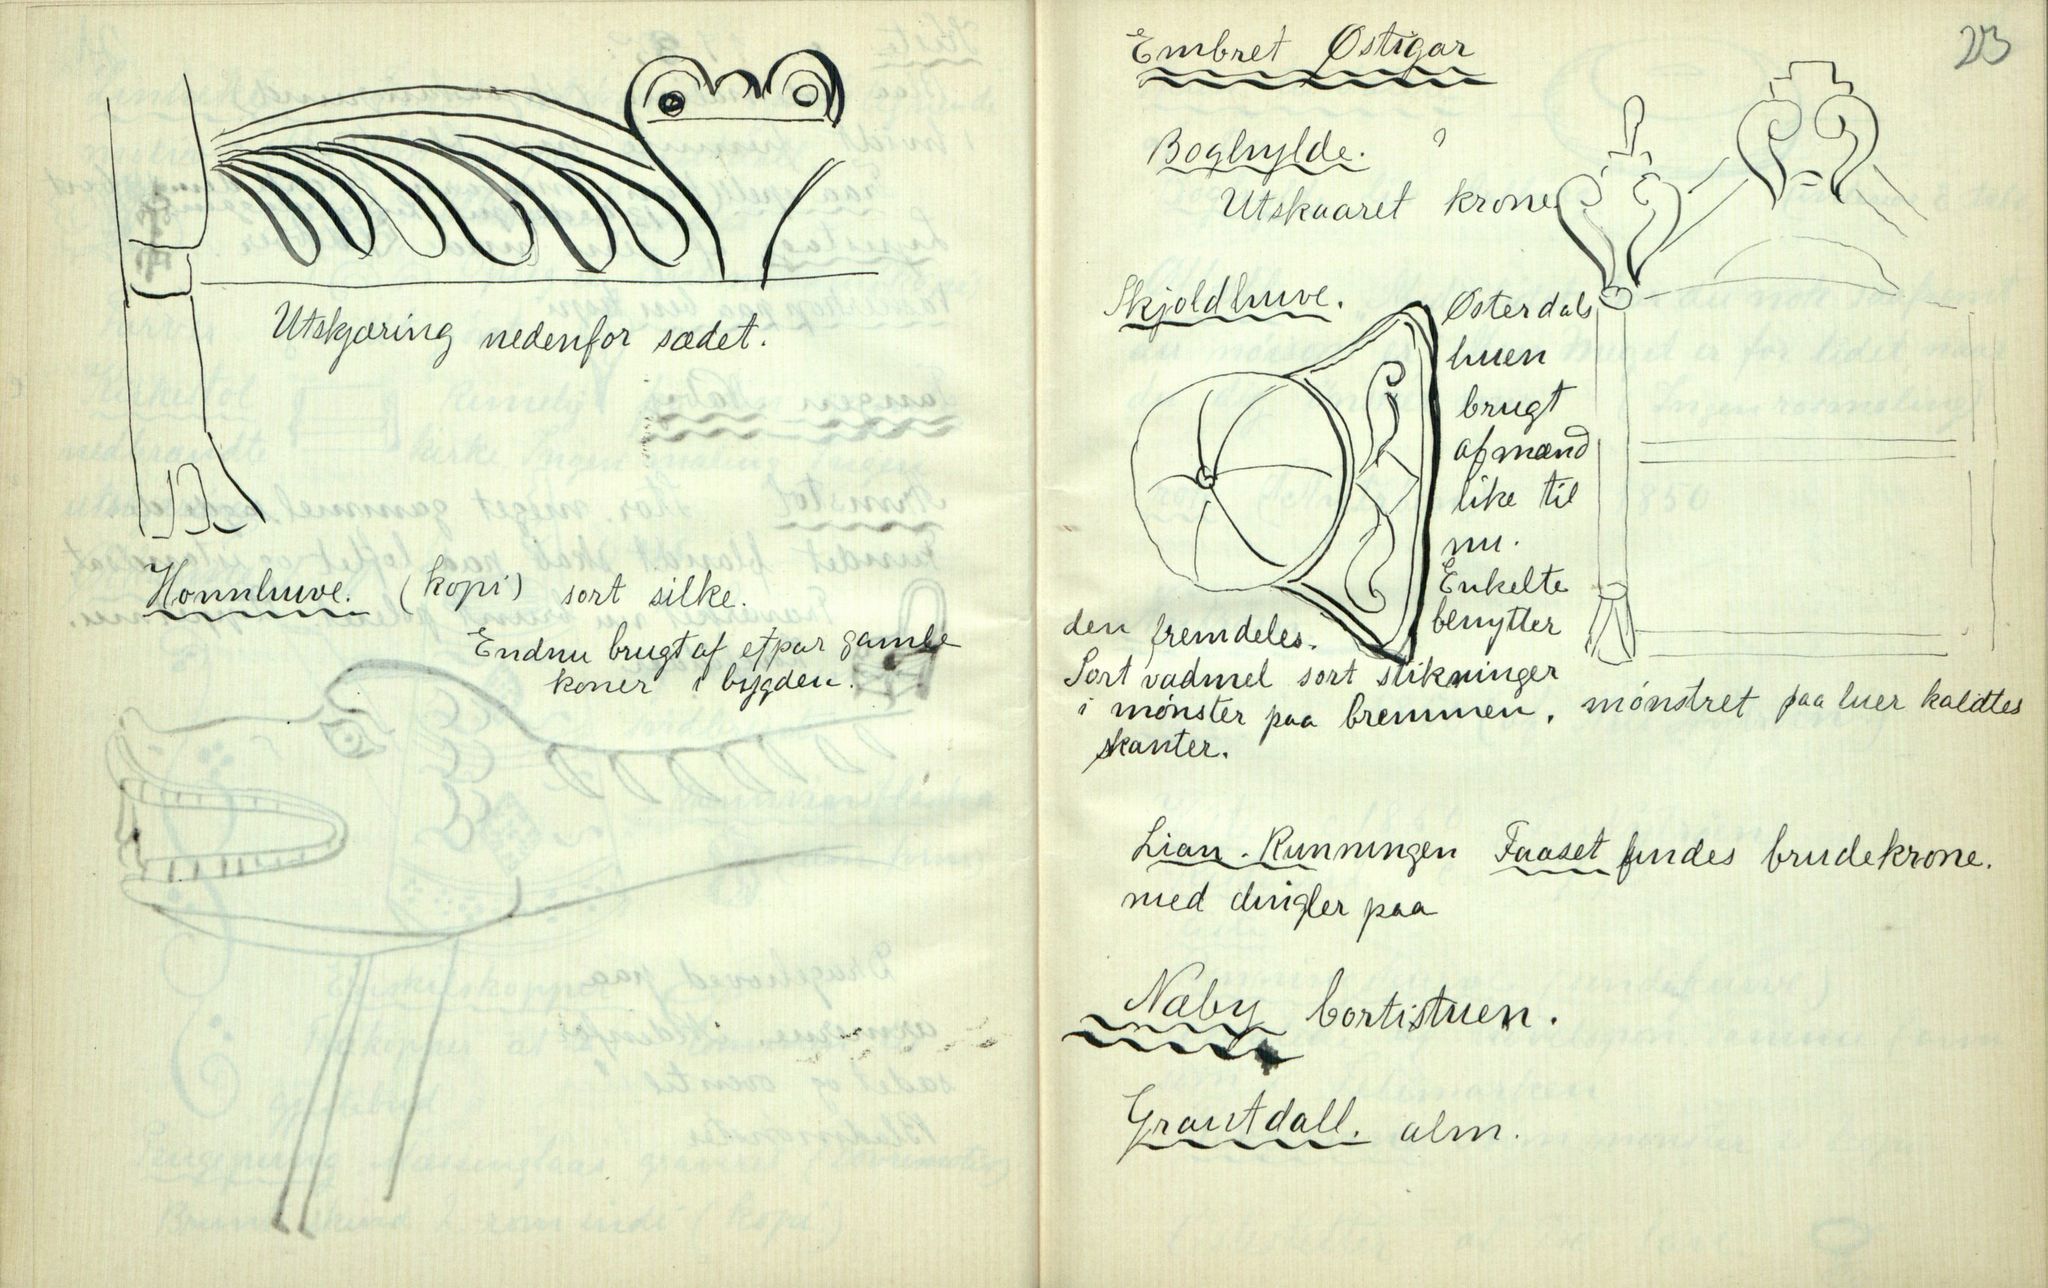 Utskjæring nedenfor sædet.
Honnhuve. (kopi) sort silke.
Endnu brugt af etpar gamle
koner i bygden.
23
Embret Østigar
Boghylde.
Utskaaret krone
Skjoldhuve.
Østerdals
huen
brugt
af mænd
like til
nu.
Enkelte
benytter
den fremdeles.
Sort vadmel sort stikninger
i mønster paa bremmen. mønstret paa luer kaldtes
skanter.
Lian. Runningen Faaset findes brudekrone.
med dingler paa
Næby bortistuen.
alm.